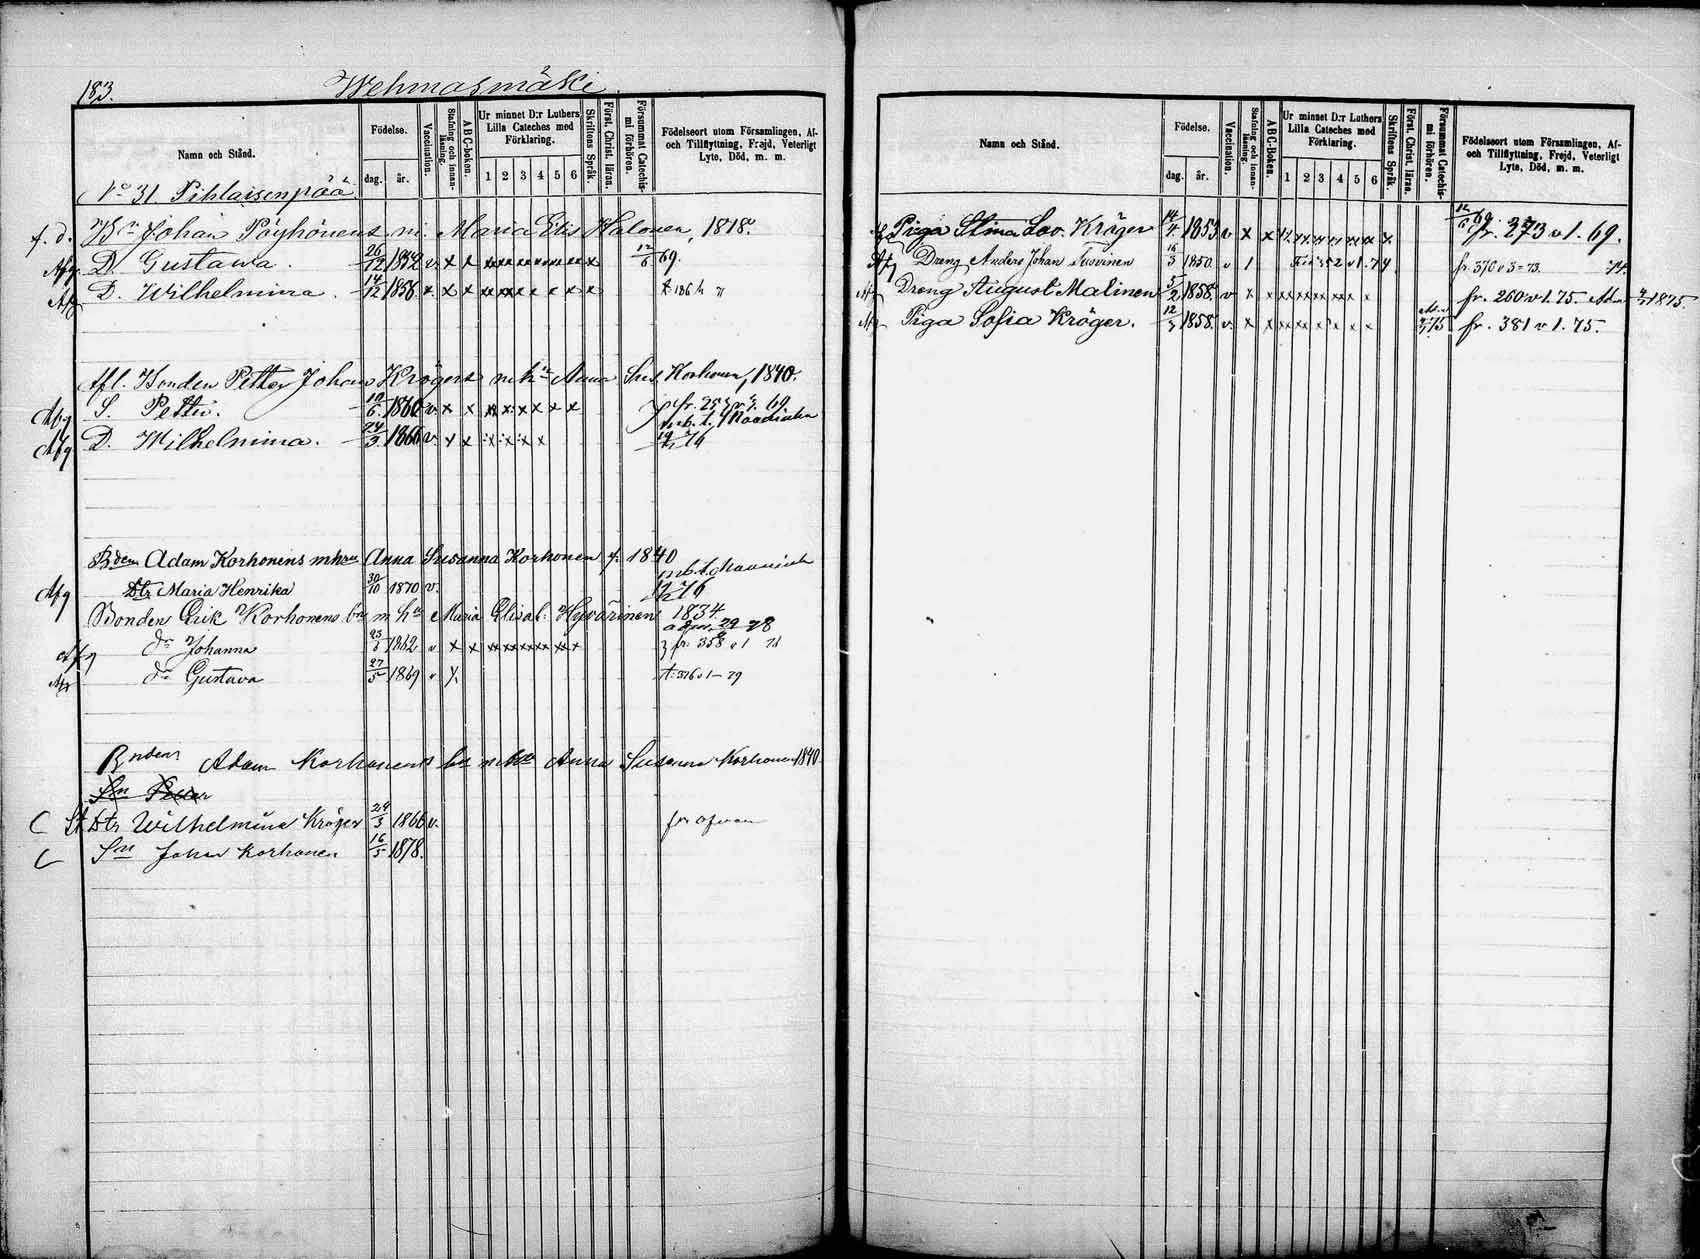 183.
Wehmasmäki.
Namn och Stånd.
Födelse.
dag. år.
Vaccination.
Stafning och innanläsning.
ABC-boken.
Ur minnet D:r Luthers Lilla Cateches med Förklaring.
1 2 3 4 5 6
Skriftens Språk.
Först. Christ. läran.
Försummat Catechismi förhören.
Födelseort utom Församlingen, Af- och Tillflyttning, Frejd, Veterligt Lyte, Död, m. m.
No 31. Pihlaisenpää
f. d. Bn Johan Pöyhönens m. Maria Elis Halonen, 1818.
Afg D. Gustawa. 26/12 1852 v. x x 12/6 69.
Afg D. Wilhelmina. 1856 v. x x
Afl. Bonden Petter Johan Krögers m. h. Anna Sus. Korhonen, 1840.
Afg S. Petter. 10/6 1860 v. x x x x x x x x fr. 69
Afg D. Wilhelmina. 24/3 1866 v. x x x x x x 76
Bden Adam Korhonens mhru Anna Susanna Korhonen f. 1840
Afg Dtr Maria Henrika 30/10 1870 v. 76
Bonden Erik Korhonens m h Maria Elisab: Hyvärinen 1834.
Afg dr Johanna 23/3 1862 v x x fr. 358 v 1 78
Afg dr Gustava 27/5 1869 v x t: 576 v 1 – 79
Bnden Adam Korhonens Anna Susanna Korhonen 1840
Sn Petter
C Dtr Wilhelmina Kröger 24/3 1866 v. fr ofvan
C Sn Johan Korhonen 16/5 1878.
Namn och Stånd.
Födelse.
dag. år.
Vaccination.
Stafning och innanläsning.
ABC-Boken.
Ur minnet D:r Luthers Lilla Cateches med Förklaring.
1 2 3 4 5 6
Skriftens Språk.
Först. Christ. läran.
Försummat Catechismi förhören.
Födelseort utom Församlingen, Af- och Tillflyttning, Frejd, Veterligt Lyte, Död, m. m.
Piga Stina Lov. Kröger 14/4 1853 v x x 12/6 69. fr. 273 v 1. 69.
Afg Dreng Anders Johan 16/3 1850. v 1 fr. 370 v 3 = 73.
Afg Dreng August Malinen 5/2 1858. v x x x x x x x x fr. 260 v 1. 75. 1875
Afg Piga Sofia Kröger. 12/3 1858. v. x x x x x x x x 75 fr. 381 v 1. 75.